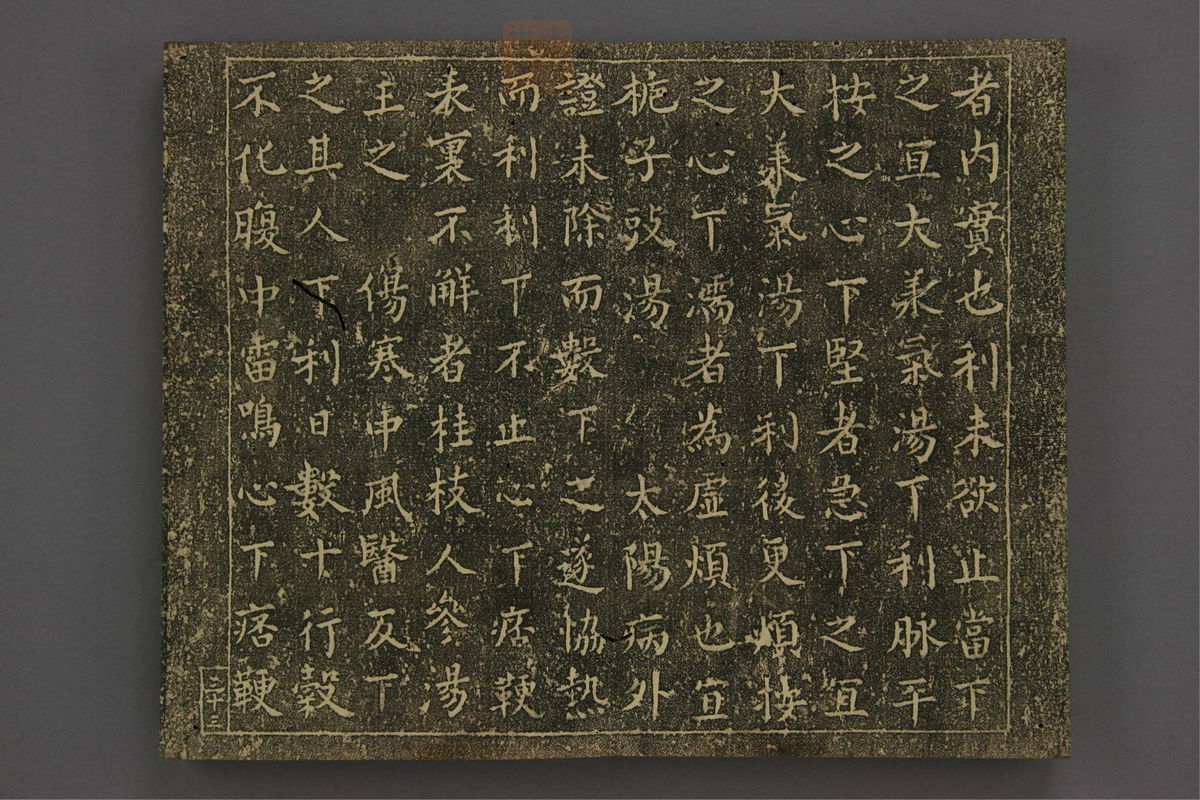 者内實也利未欲止當下
之宜大承氣湯下利脉平
按之心下堅者急下之宜
大承氣湯下利後更煩按
之心下濡者為虛煩也宜
梔子豉湯　太陽病外
證未除而數下之遂協熱
而利利下不止心下痞鞕
表裏不解者桂枝人參湯
主之　傷寒中風醫反下
之其人下利日數十行穀
不化腹中雷鳴心下痞鞕
二十三